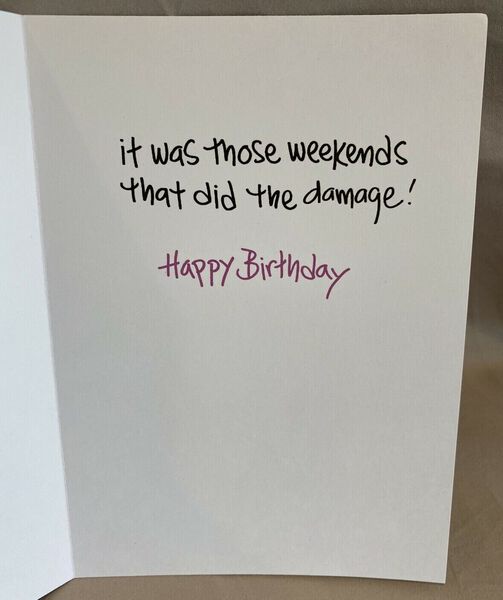 it was those weekends
that did the damage!
Happy Birthday